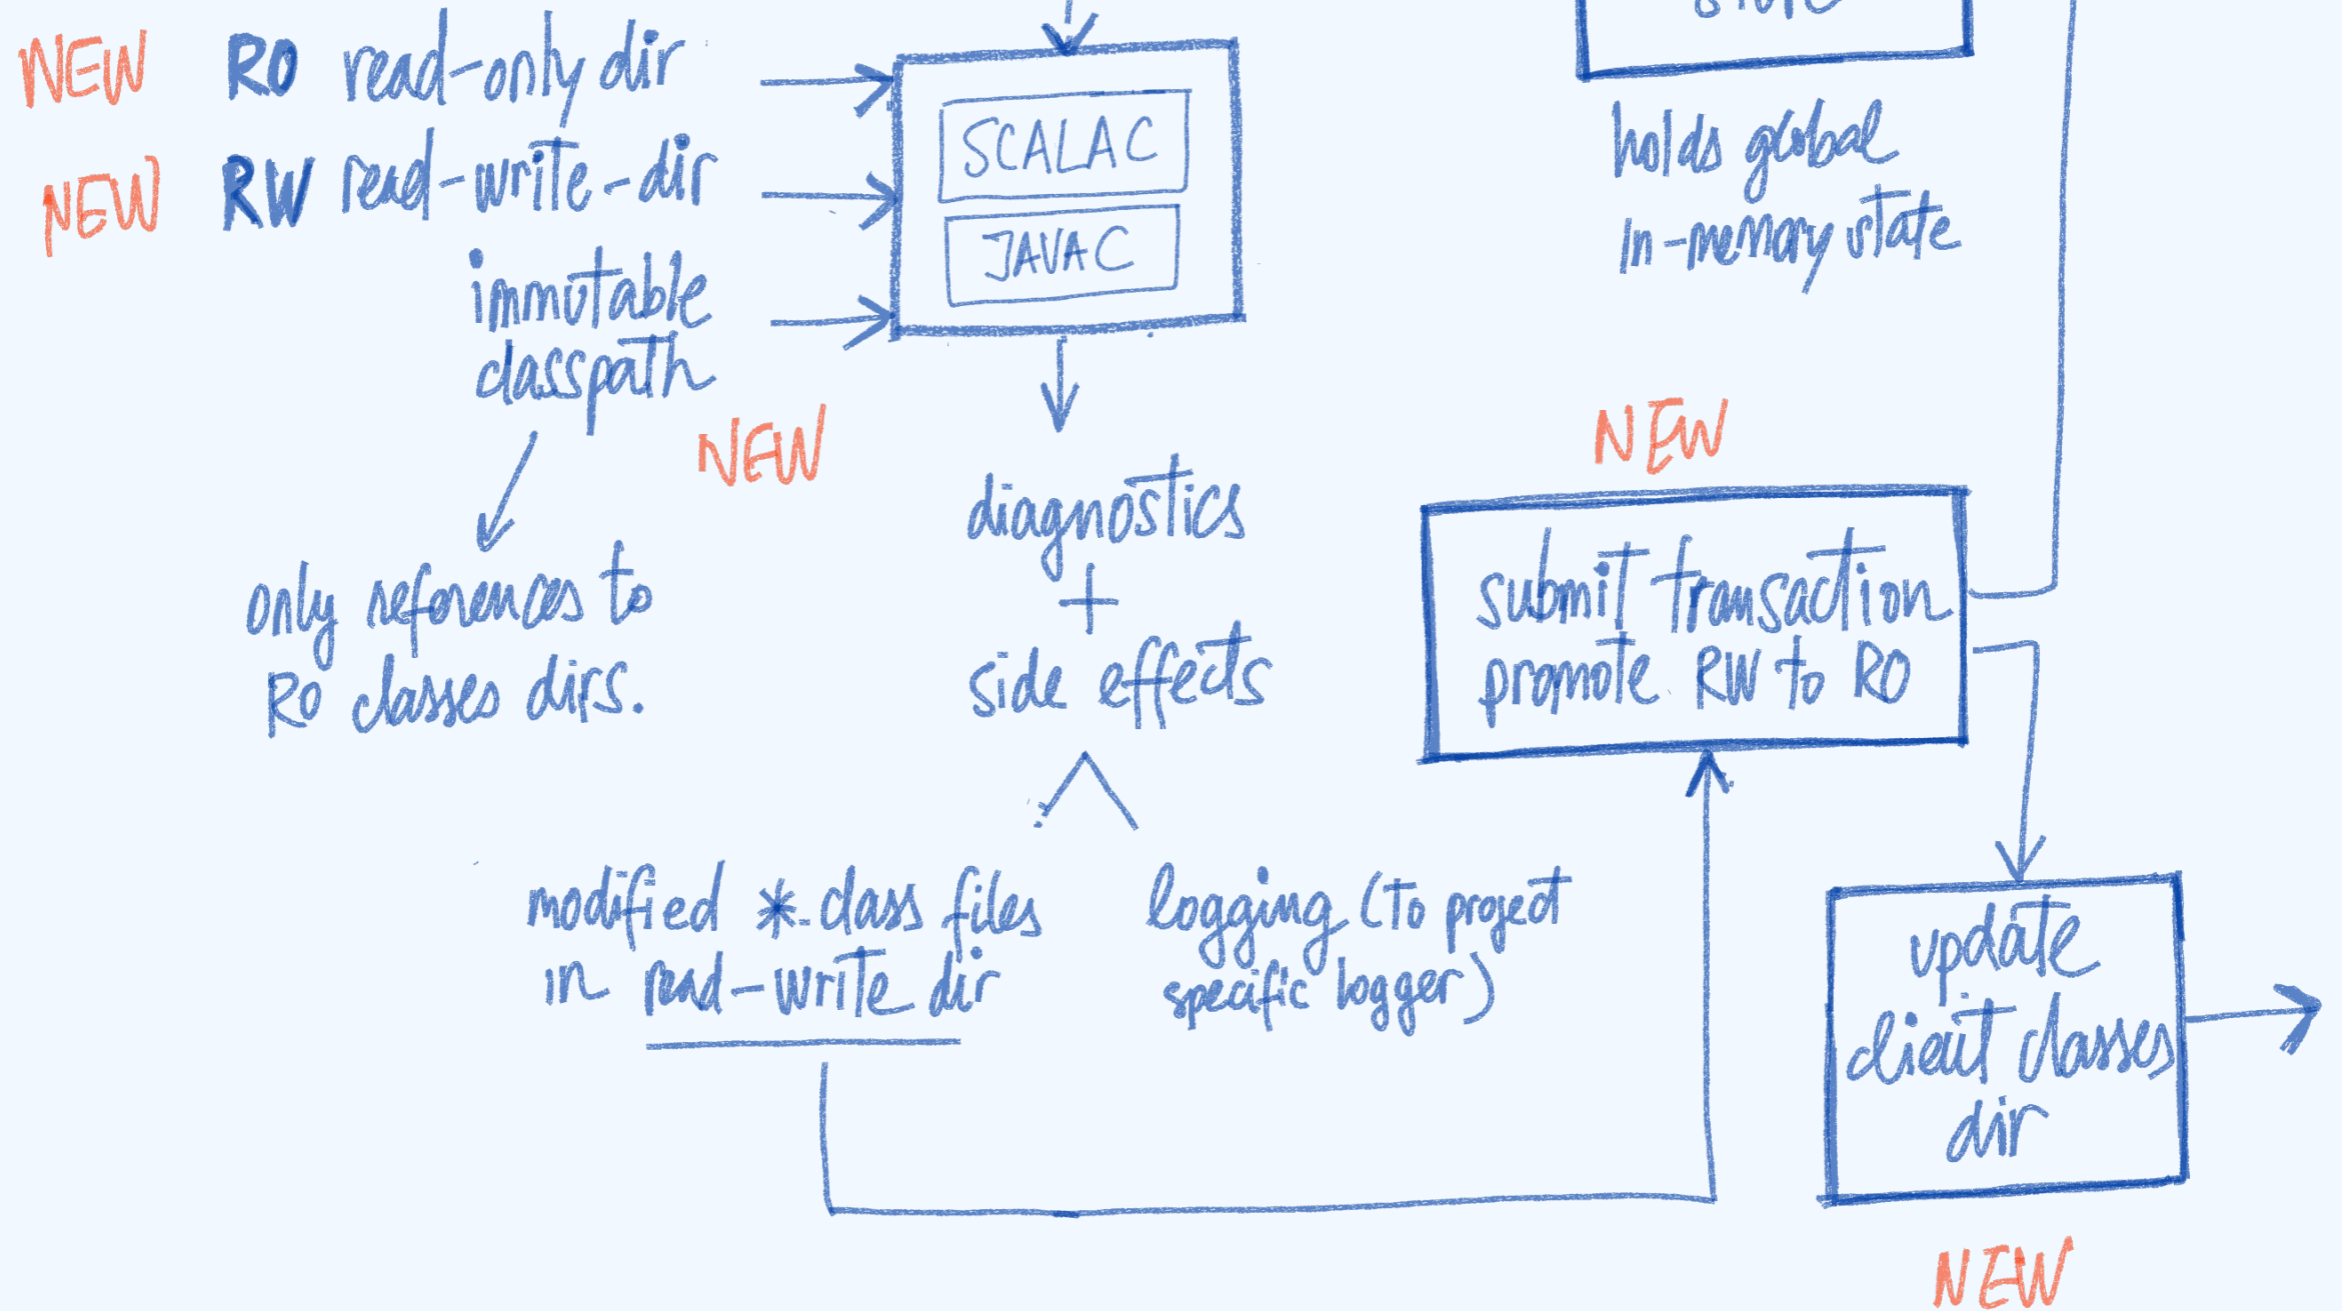 NEW RO read-only dir
NEW RW read-write-dir
immutable
classpath
NEW
only references to
RO classes dirs.
SCALAC
JAVAC
diagnostics
+
side effects
modified *.class files
in read-write dir
logging (to project
specific logger)
state
holds global
in-memory state
NEW
submit transaction
promote RW to RO
update
client classes
dir
NEW